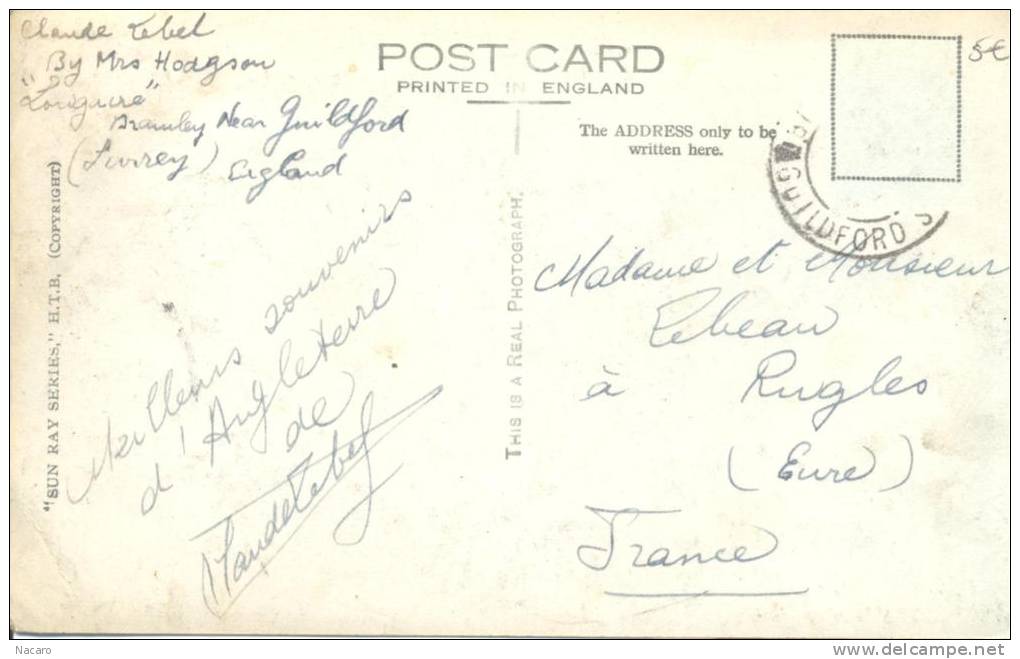 Claude Lebel
By Mrs Hodgson
"Longacre"
Bramley Near Guildford
(Surrey) England
POST CARD
PRINTED IN ENGLAND
5€
The ADDRESS only to be
written here.
GUILDFORD S
"SUN RAY SERIES," H.T.B. (COPYRIGHT)
THIS IS A REAL PHOTOGRAPH.
Meilleurs souvenirs
d'Angleterre
de
Claude Lebel
Madame et Monsieur
Lebeau
à Rugles
(Eure)
France
Nacaro
delcampe.net